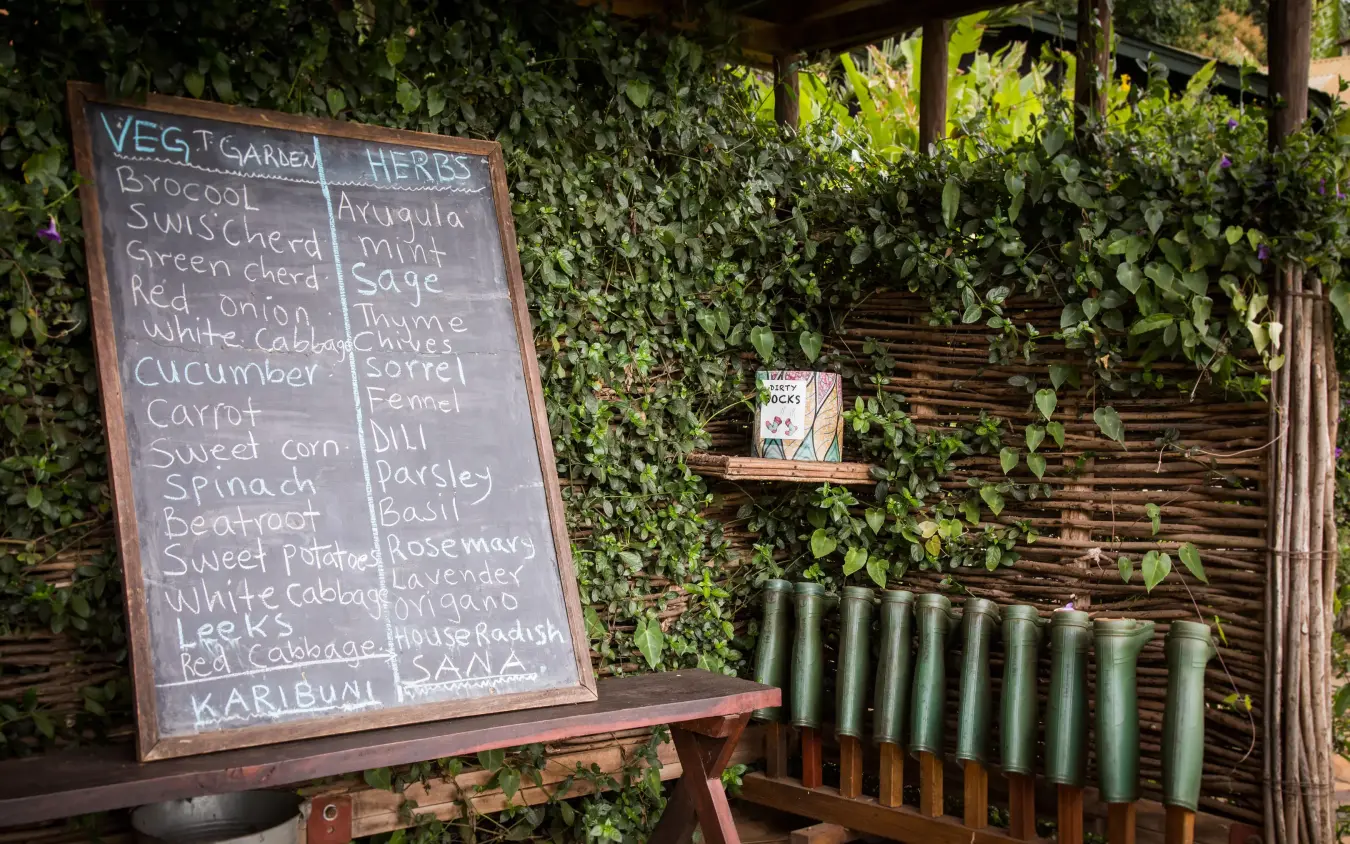 VEG T. GARDEN
BROCOOL
SWIS Cherd
Green cherd.
Red onion.
White Cabbage
CUCUMBER.
Carrot
Sweet corn.
Spinach
Beatroot
Sweet potatoes
White Cabbage
LeeKS
Red cabbage.
KARIBUNI
HERBS
Arugula
mint
Sage
Thyme
Chives
Sorrel
Fennel
DILl
Parsley
Basil
Rosemary
Lavender
origano
House Radish
SANA.
DIRTY
OCKS